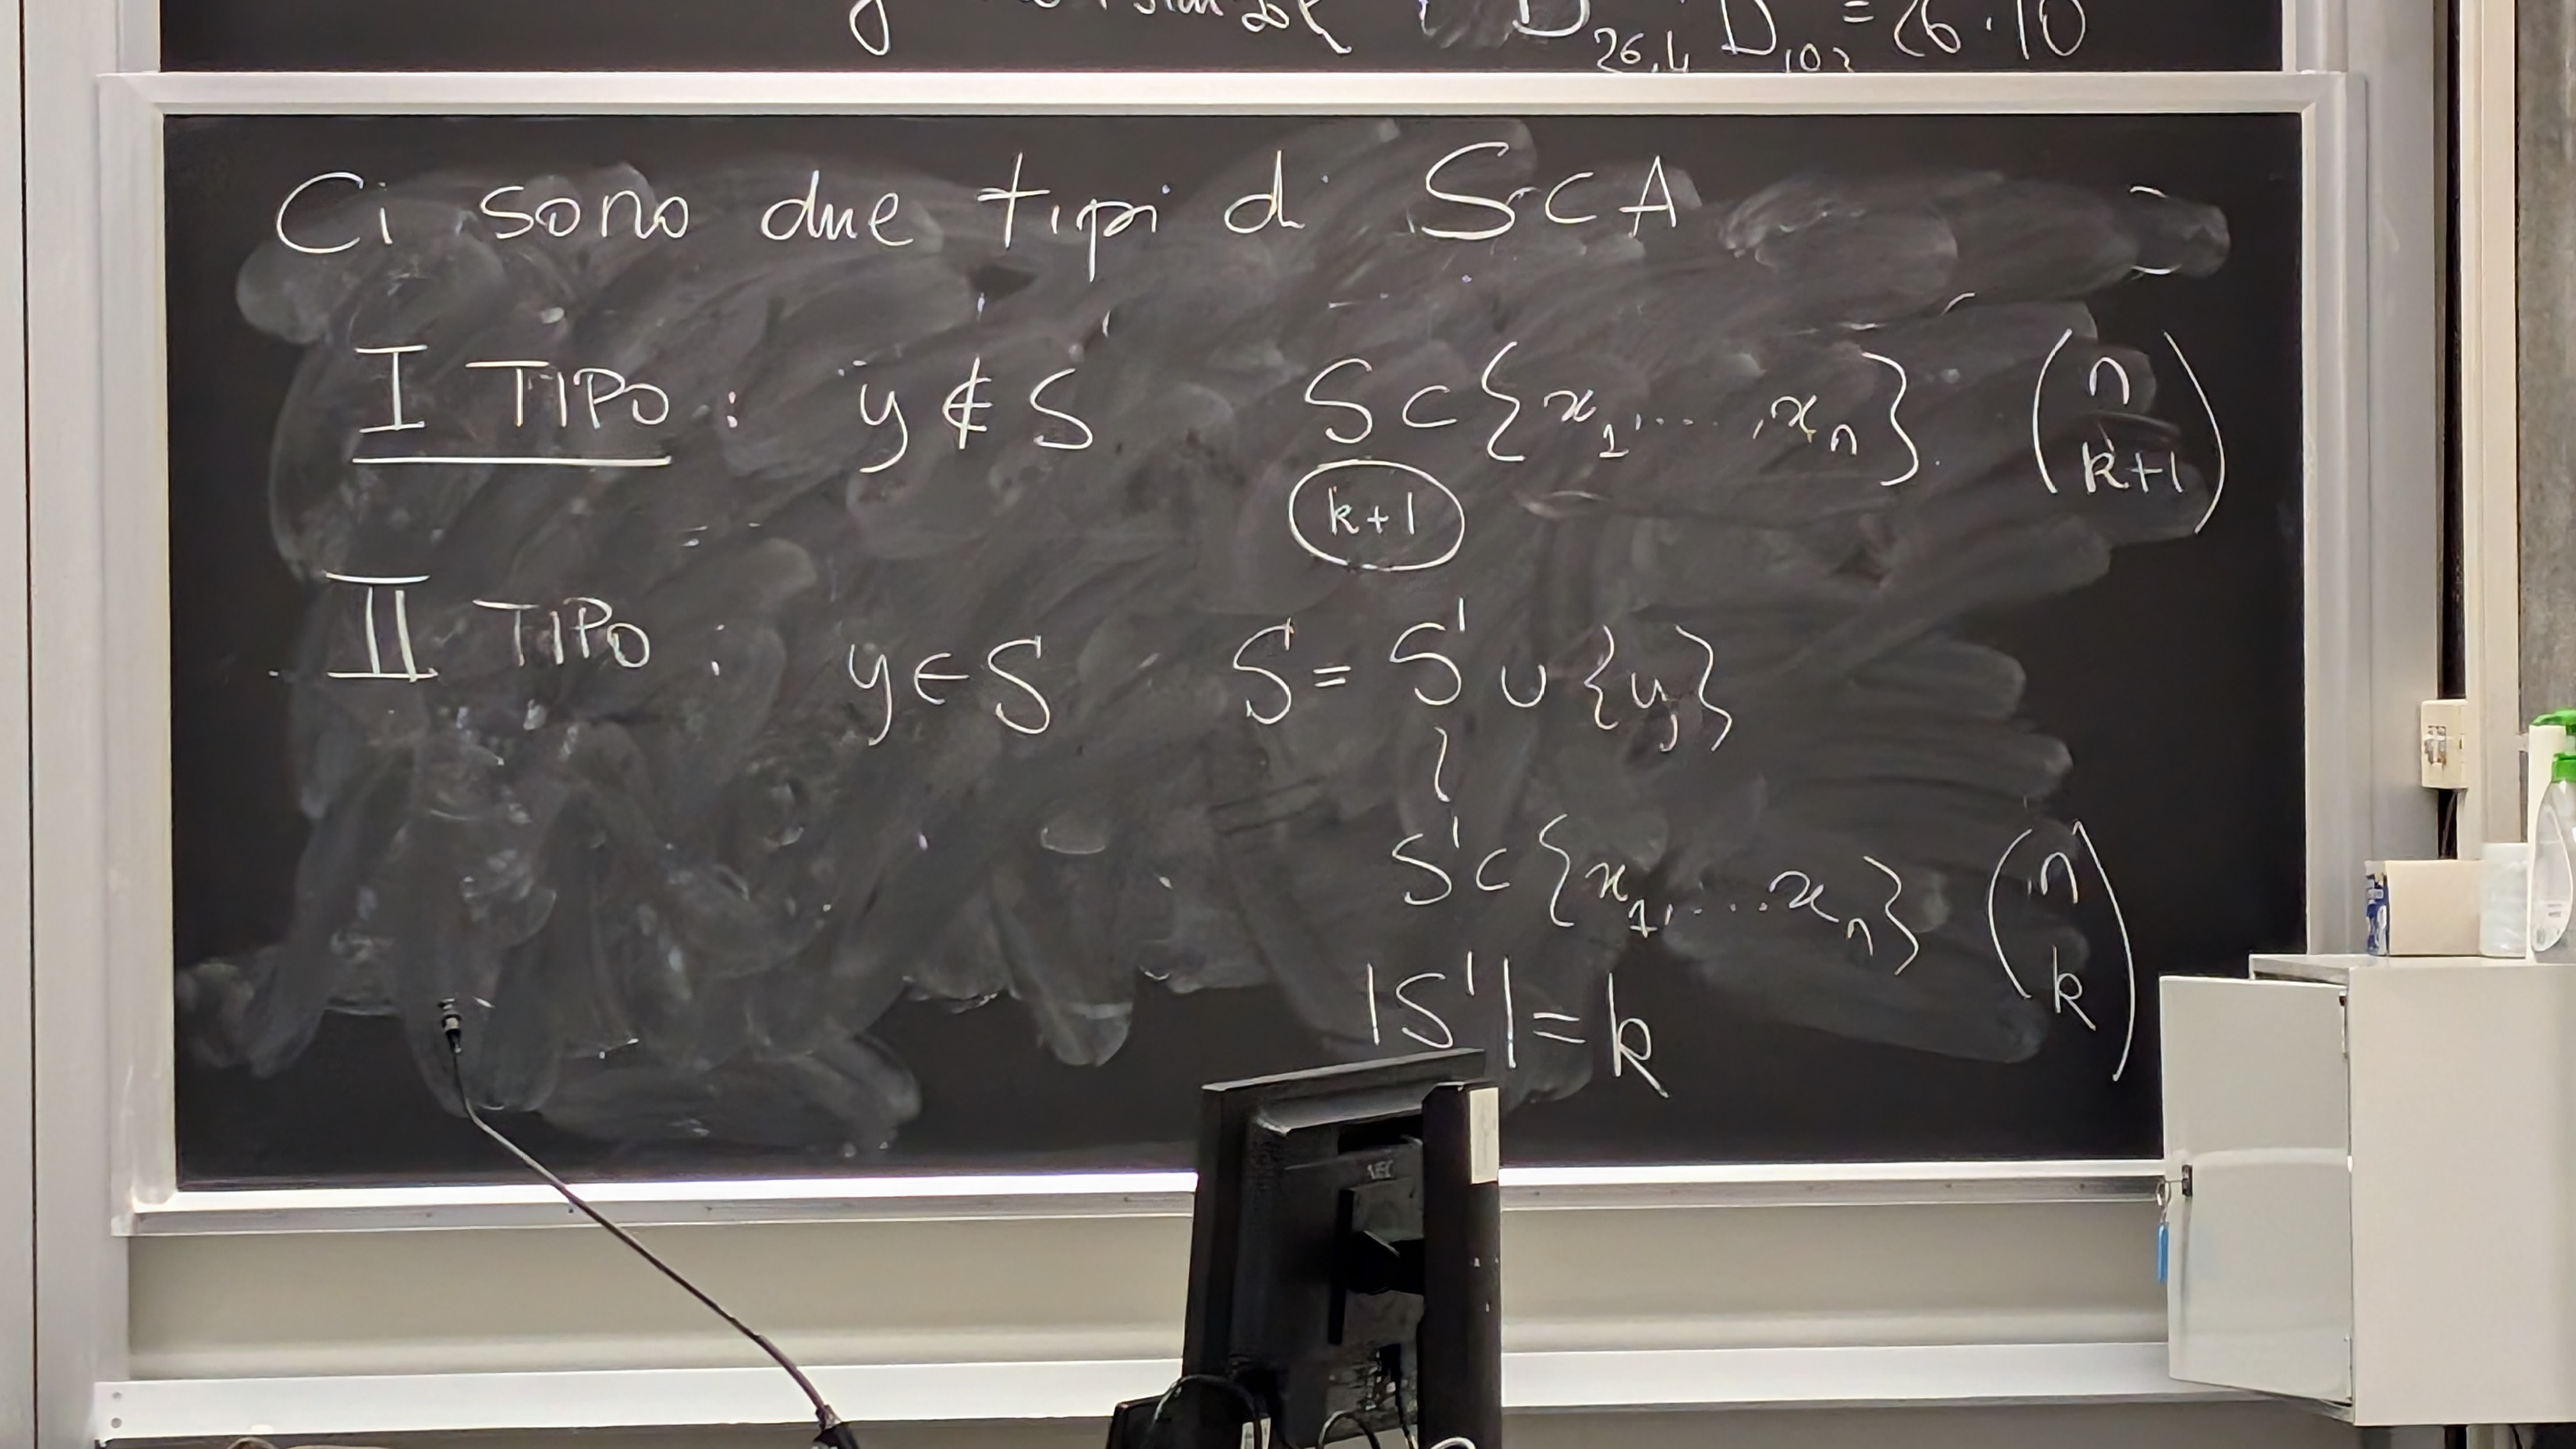 D₂₆,₄ D₁₀,₂ = 26·10
Ci sono due tipi di S ⊂ A
I TIPO : y ∉ S S ⊂ {x₁, ..., xₙ}. (n k+1)
k+1
II TIPO : y ∈ S S = S' ∪ {y}
S' ⊂ {x₁, ... xₙ} (n k)
|S'| = k
NEC